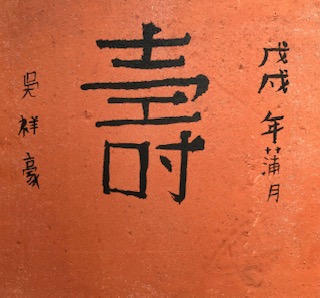 戊戌年蒲月
壽
吳祥豪